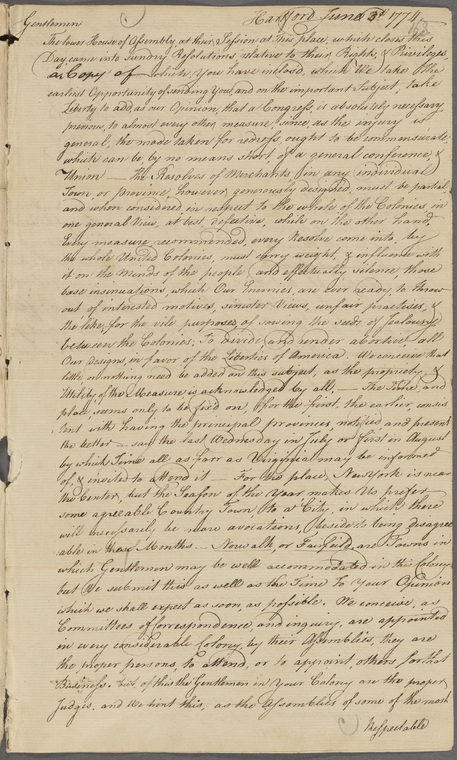 Gentlemen Hartford June 3d 1774
The lower House of Assembly, at their Session at this place, which closes this
Day, came into sundry Resolutions, relative to their Rights, & Privileges,
a Copy of which, You have inclosed, which We take the
earliest Opportunity of sending You, and on the important Subject, take
Liberty to add, as our Opinion, that a Congress is absolutely necessary
previous to almost every other measure, since, as the injury is
general, the mode taken for redress, ought to be commensurate
which can be by no means short, of a general conference, &
Union — the Resolves of Merchants (in any individual
Town, or province, however, generously designed, must be partial,
and when considered in respect to the whole of the Colonies in
one general View, at best defective, while on the other hand,
Every measure, recommended, every Resolve come into, by
the whole United Colonies, must carry weight, & influence with
it on the Minds of the people and effectually silence, those
base insinuations, which Our Enemies, are ever ready to throw
out of interested motives, sinister Views, unfair practises, &
the like, for the vile purposes, of sowing the seeds of Jealousy
between the Colonies, To divide, and render abortive, all
Our designs, in favor of the Liberties of America. We conceive that
little, or nothing need be added on this subject, as the propriety, &
Utility of the Measure is acknowledged by all, — The Time and
place, seems only to be fixed on, for the first, the earlier, consis
tent with having the principal provinces, notified and present
the better — say the last Wednesday in July or first in August
by which Time all as farr as Virginia may be informed
of, & invited to attend it — For the place, New York is near
the Center, but the Season of the Year makes Us prefer
some agreeable Country Town to a City, in which there
will necessarily be more avocations, besides being disagree
able in these Months — Norwalk, or Fairfield, are Towns in
which Gentlemen may be well accommodated in this Colony
but We submit this as well as the Time to Your Opinion
which we shall expect as soon, as possible. We conceive, as
Committees of Correspondence, and inquiry, are appointed
in every considerable Colony, by their Assemblies, they are
the proper persons, to attend, or to appoint, others for that
Business. of this the Gentlemen in Your Colony are the proper
Judges, and We hint this, as the Assemblies of some of the most
Respectable